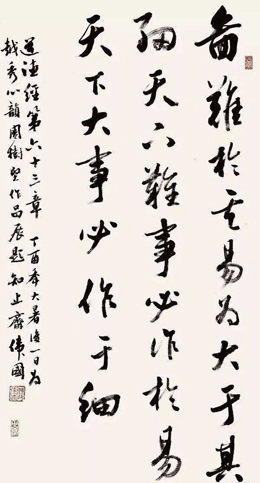 圖難於其易為大于其
細天下難事必作於易
天下大事必作于細
道德經第六十三章 丁酉年大暑後一日為
越秀心韻周樹堅作品展題 知止齋偉國